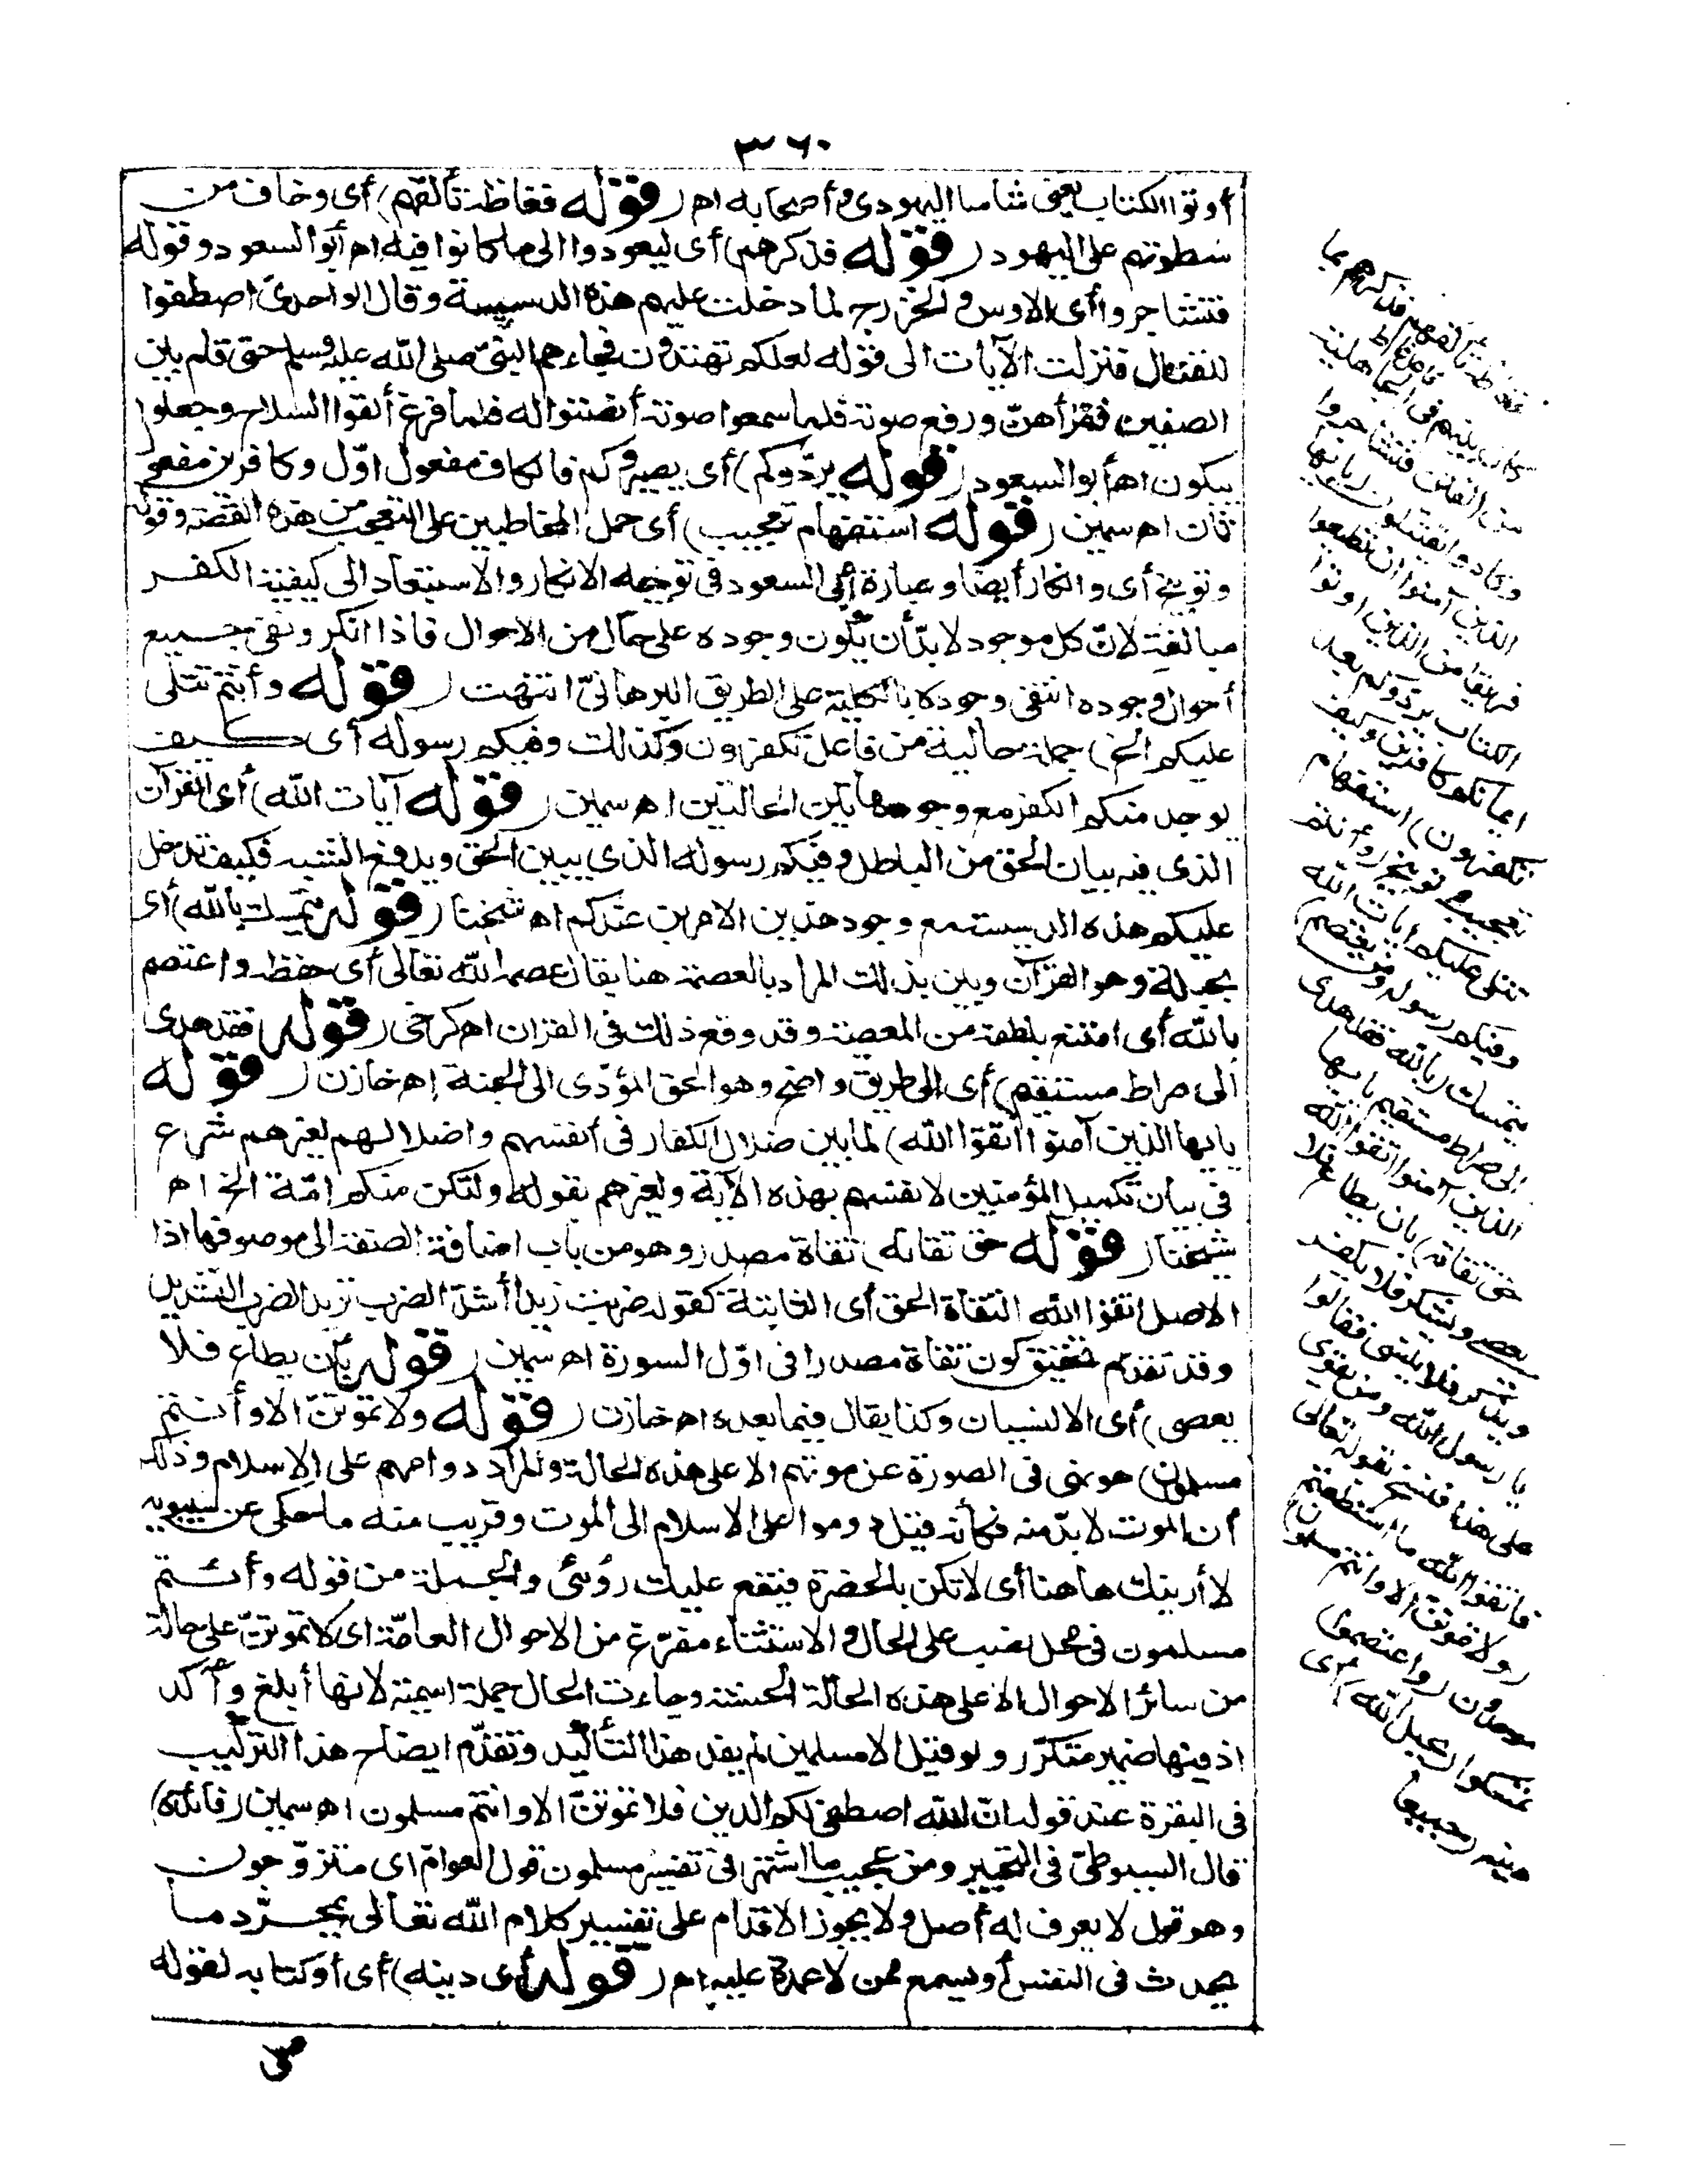 ٣٦٠
أوتوا الكتاب يعنى شاسا اليهودى وأصحابه اه (قوله فغاظه تألفهم) أى وخاف من
سطوتهم على اليهود (قوله فذكرهم) أى ليعودوا الى ما كانوا فيه اه أبو السعود وقوله
فتشاجروا أى الاوس والخزرج لما دخلت عليهم هذه الدسيسة وقال الواحدى اصطفوا
للقتال فنزلت الآيات الى قوله لعلكم تهتدون فجاءهم النبى صلى الله عليه وسلم حتى قام بين
الصفين فقرأهنّ ورفع صوته فلما سمعوا صوته أنصتوا له فلما فرغ ألقوا السلاح وجعلوا
يبكون اه أبو السعود (قوله يردّوكم) أى يصيروكم فالكاف مفعول اوّل وكافرين مفعول
ثان اه سمين (قوله استفهام تعجيب) أى حمل المخاطبين على التعجب من هذه القصة وقوله
وتوبيخ أى وانكار أيضا وعبارة أبى السعود فى توجيه الانكار والاستبعاد الى كيفية الكفر
مبالغة لانّ كل موجود لابدّ أن يكون وجوده على حال من الاحوال فاذا انكر ونفى جميع
أحوال وجوده انتفى وجوده بالكلية على الطريق البرهانىّ انتهت (قوله وأنتم تتلى
عليكم الخ) جملة حالية من فاعل تكفرون وكذلك وفيكم رسوله أى كيف
يوجد منكم الكفر مع وجود هاتين الحالتين اه سمين (قوله آيات الله) أى القرآن
الذى فيه بيان الحق من الباطل وفيكم رسوله الذى يبين الحق ويدفع الشبه فكيف تدخل
عليكم هذه الدسيسة مع وجود هذين الامرين عندكم اه شيخنا (قوله يتمسك بالله) أى
بحبله وهو القرآن وبين بذلك المراد بالعصمة هنا يقال عصمه الله تعالى أى حفظه واعتصم
بالله أى امتنع بلطفه من المعصية وقد وقع ذلك فى القرآن اه كرخى (قوله فقد هدى
الى صراط مستقيم) أى الى طريق واضح وهو الحق المؤدّى الى الجنة اه خازن (قوله
يايها الذين آمنوا اتقوا الله) لما بين ضلال الكفار فى أنفسهم واضلالهم لغيرهم شرع
فى بيان تكميل المؤمنين لانفسهم بهذه الآية ولغيرهم بقوله ولتكن منكم امّة الخ اه
شيخنا (قوله حق تقاته) تقاة مصدر وهو من باب اضافة الصفة الى موصوفها اذ
الاصل اتقوا الله التقاة الحق أى الثابتة كقوله ضربت زيدا أشدّ الضرب تريد الضرب الشديد
وقد تقدّم تحقيق كون تقاة مصدرا فى اوّل السورة اه سمين (قوله بأن يطاع فلا
يعصى) أى الا لنسيان وكذا يقال فيما بعده اه خازن (قوله ولا تموتنّ الا وأنتم
مسلمون) هو نهى فى الصورة عن موتهم الا على هذه الحالة والمراد دوامهم على الاسلام وذلك
أن الموت لابدّ منه فكأنه قيل دوموا على الاسلام الى الموت وقريب منه ما حكى عن سيبويه
لا أرينك هاهنا أى لا تكن بالحضرة فيقع عليك رؤيتى والجملة من قوله وأنتم
مسلمون فى محل نصب على الحال والاستثناء مفرّغ من الاحوال العامّة اى لا تموتنّ على حالة
من سائر الاحوال الا على هذه الحالة الحسنة وجاءت الحال جملة اسمية لانها أبلغ وآكد
اذ فيها ضمير متكرّر ولو قيل الا مسلمين لم يفد هذا التأكيد وتقدّم ايضاح هذا التركيب
فى البقرة عند قوله ان الله اصطفى لكم الدين فلا تموتنّ الا وانتم مسلمون اه سمين (فائدة)
قال السيوطىّ فى التحبير ومن عجيب ما اشتهر فى تفسير مسلمون قول العوام اى متزوّجون
وهو قول لا يعرف له أصل ولا يجوز الاقدام على تفسير كلام الله تعالى بمجرّد ما
يحدث فى النفس أو يسمع ممن لا عمدة عليه اه (قوله أى دينه) أى أو كتابه لقوله
فغاظه تألفهم فذكرهم بما
كان بينهم فى الجاهلية
من الفتن فتشاجروا
وكادوا يقتتلون (يايها
الذين آمنوا ان تطيعوا
فريقا من الذين اوتوا
الكتاب يردّوكم بعد
ايمانكم كافرين وكيف
تكفرون) استفهام
تعجيب وتوبيخ (وأنتم
تتلى عليكم ايات الله
وفيكم رسوله ومن يعتصم)
يتمسك (بالله فقد هدى
الى صراط مستقيم يايها
الذين آمنوا اتقوا الله
حق تقاته) بان يطاع فلا
يعصى ويشكر فلا يكفر
ويذكر فلا ينسى فقالوا
يا رسول الله ومن يقوى
على هذا فنسخ بقوله تعالى
فاتقوا الله ما استطعتم
(ولا تموتنّ الا وانتم مسلمون)
موحدون (واعتصموا)
تمسكوا (بحبل الله) أى
دينه (جميعا